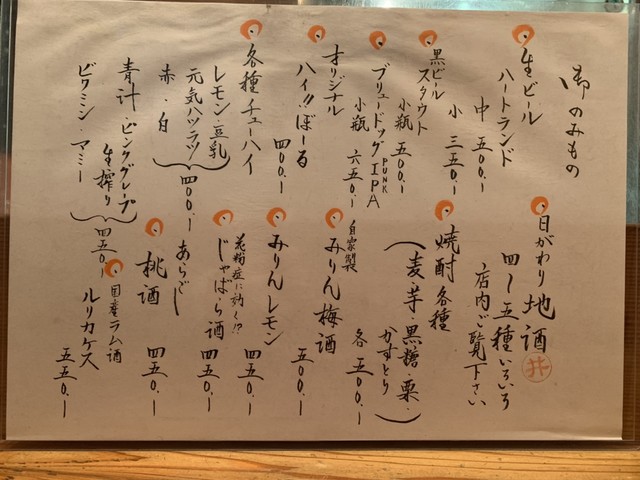 御のみもの
生ビール
ハートランド
中 五〇〇.ー
小 三五〇.ー
黒ビール
スタウト
小瓶 五〇〇.ー
ブリュードッグ PUNK IPA
小瓶 六五〇.ー
オリジナル
ハイ!!ぼーる
四〇〇.ー
各種チューハイ
レモン・豆乳
元気ハツラツ
赤・白
四〇〇.ー
青汁・ピンクグレープ
生搾り
ビワミン・マミー
四五〇.ー
日がわり地酒
四〜五種いろいろ
店内ご覧下さい
焼酎各種
(麦・芋・黒糖・栗・
かすとり)
各 五〇〇.ー
自家製
みりん梅酒
五〇〇.ー
みりんレモン
四五〇.ー
花粉症に効く!?
じゃばら酒
四五〇.ー
あらごし
桃酒
四五〇.ー
国産ラム酒
ルリカケス
五五〇.ー